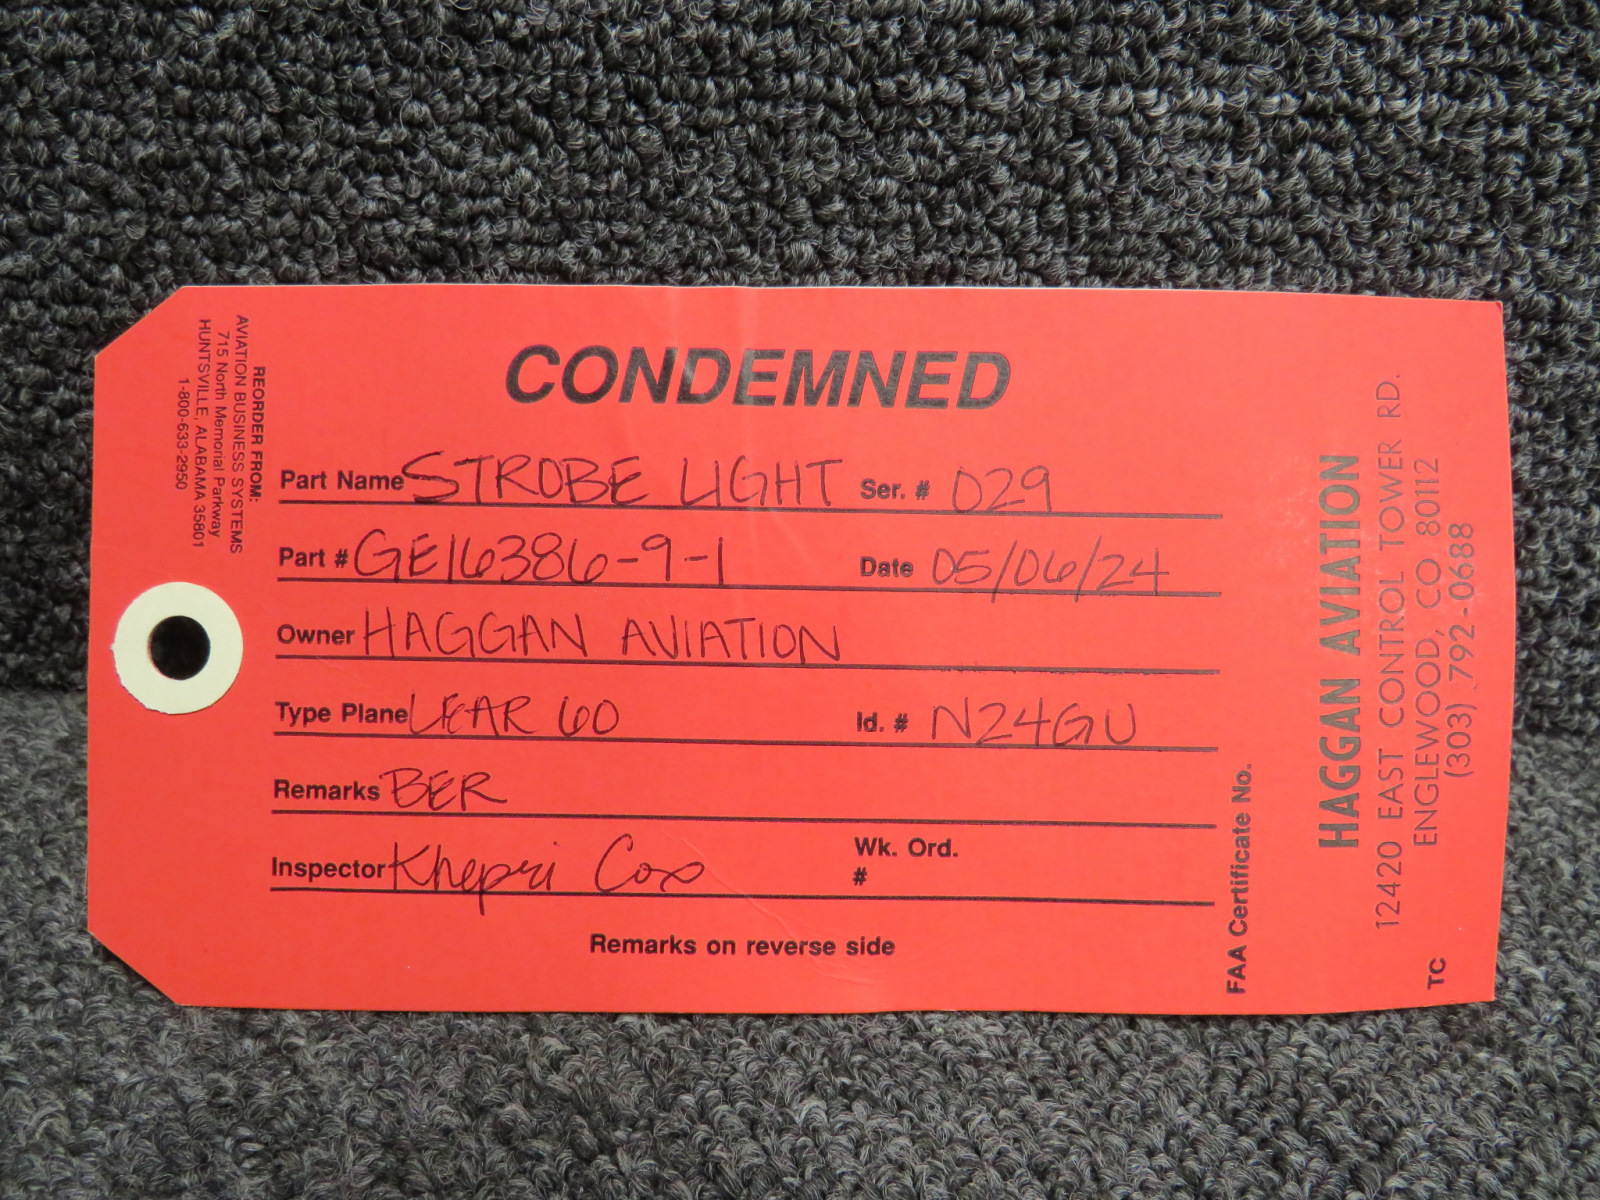 CONDEMNED
Part Name STROBE LIGHT Ser. # 029
Part # GE16386-9-1 Date 05/06/24
Owner HAGGAN AVIATION
Type Plane LEAR 60 Id. # N24GU
Remarks BER
Inspector Khepri Cox Wk. Ord. #
Remarks on reverse side
REORDER FROM:
AVIATION BUSINESS SYSTEMS
715 North Memorial Parkway
HUNTSVILLE, ALABAMA 35801
1-800-633-2950
FAA Certificate No.
HAGGAN AVIATION
12420 EAST CONTROL TOWER RD.
ENGLEWOOD, CO 80112
(303) 792-0688
TC